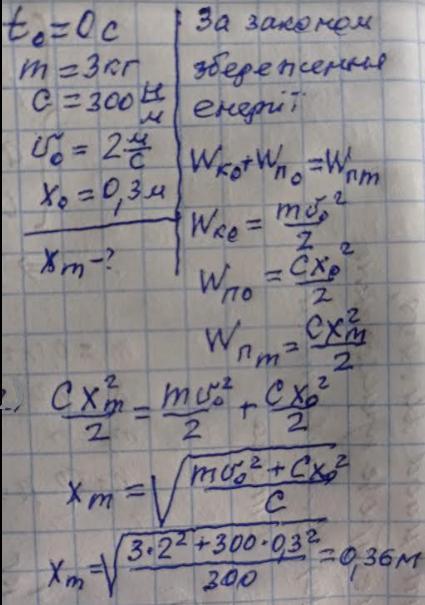 t₀=0c
m=3кг
C=300 Н/м
v₀=2 м/с
x₀=0,3м
xₘ-?
За законом
збереження
енергії
Wк₀+Wп₀=Wпm
Wк₀=mv₀²/2
Wп₀=Cx₀²/2
Wпm=Cxₘ²/2
Cxₘ²/2=mv₀²/2+Cx₀²/2
xₘ=√((mv₀²+Cx₀²)/C)
xₘ=√((3·2²+300·0,3²)/300)=0,36м